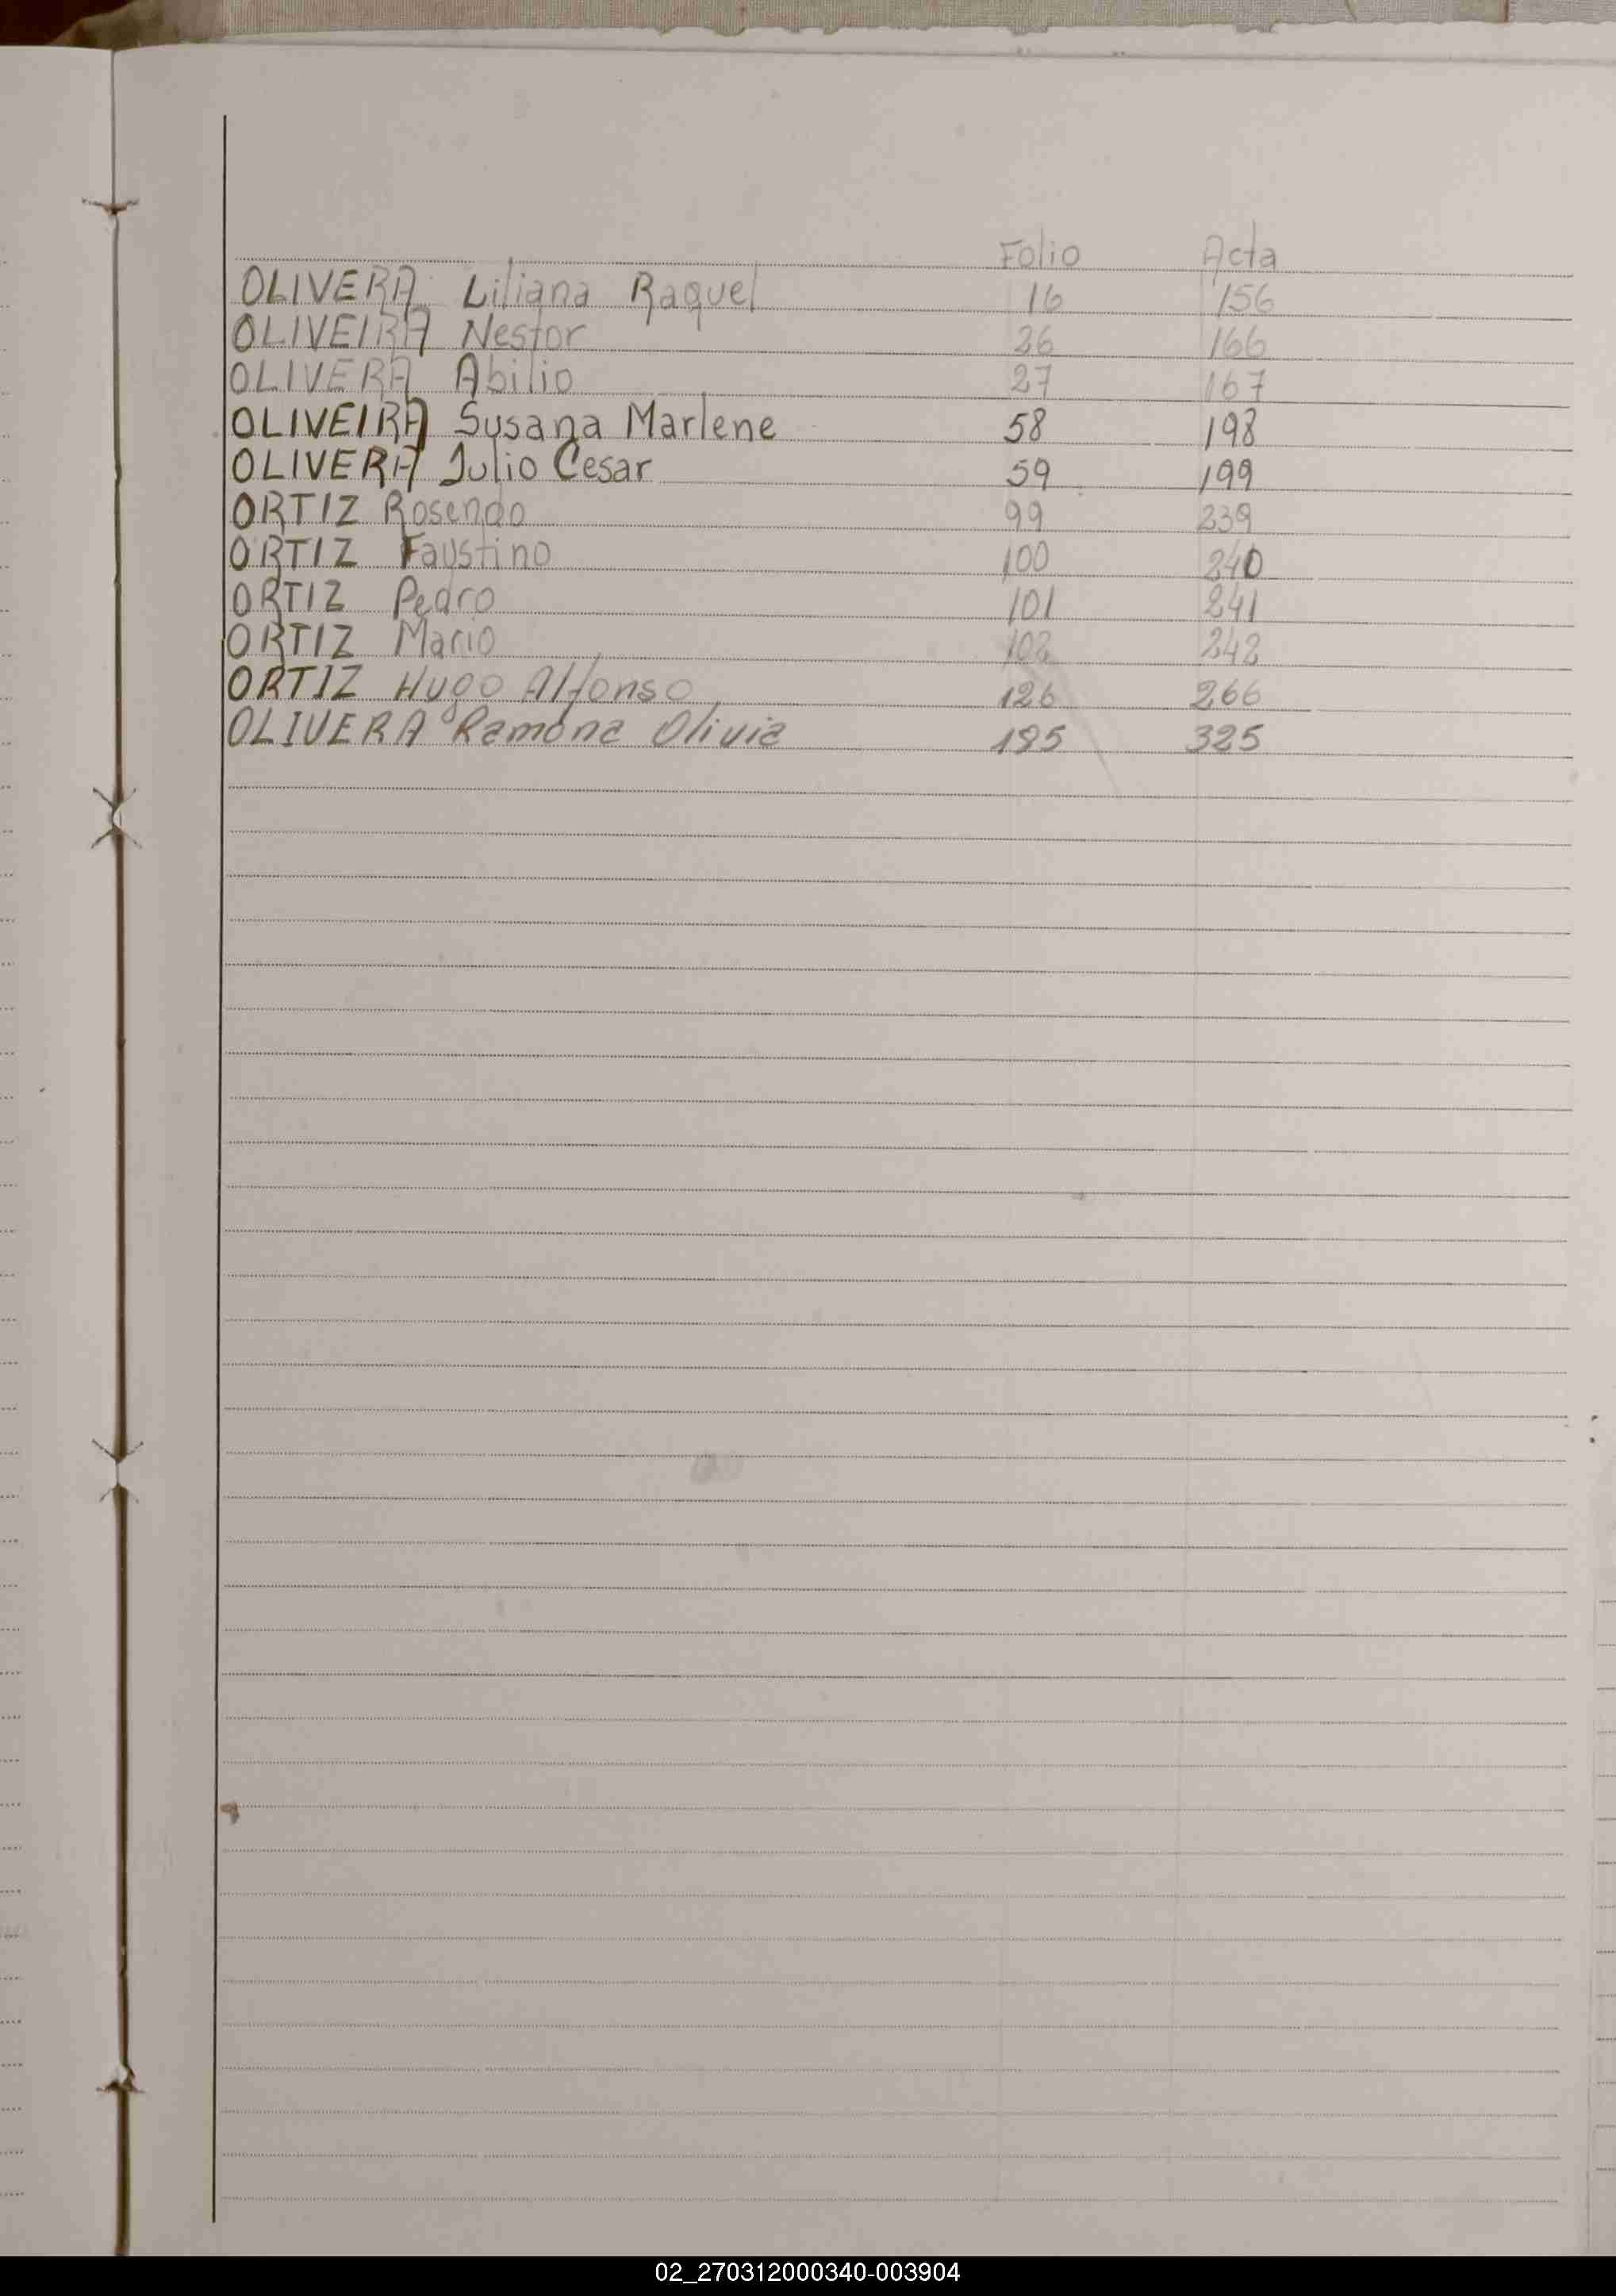 Folio Acta
OLIVERA Liliana Raquel 16 156
OLIVEIRA Nestor 26 166
OLIVERA Abilio 27 167
OLIVEIRA Susana Marlene 58 198
OLIVERA Julio Cesar 59 199
ORTIZ Rosendo 99 239
ORTIZ Faustino 100 240
ORTIZ Pedro 101 241
ORTIZ Mario 102 242
ORTIZ Hugo Alfonso 126 266
OLIVERA Ramona Olivia 185 325
02_270312000340-003904